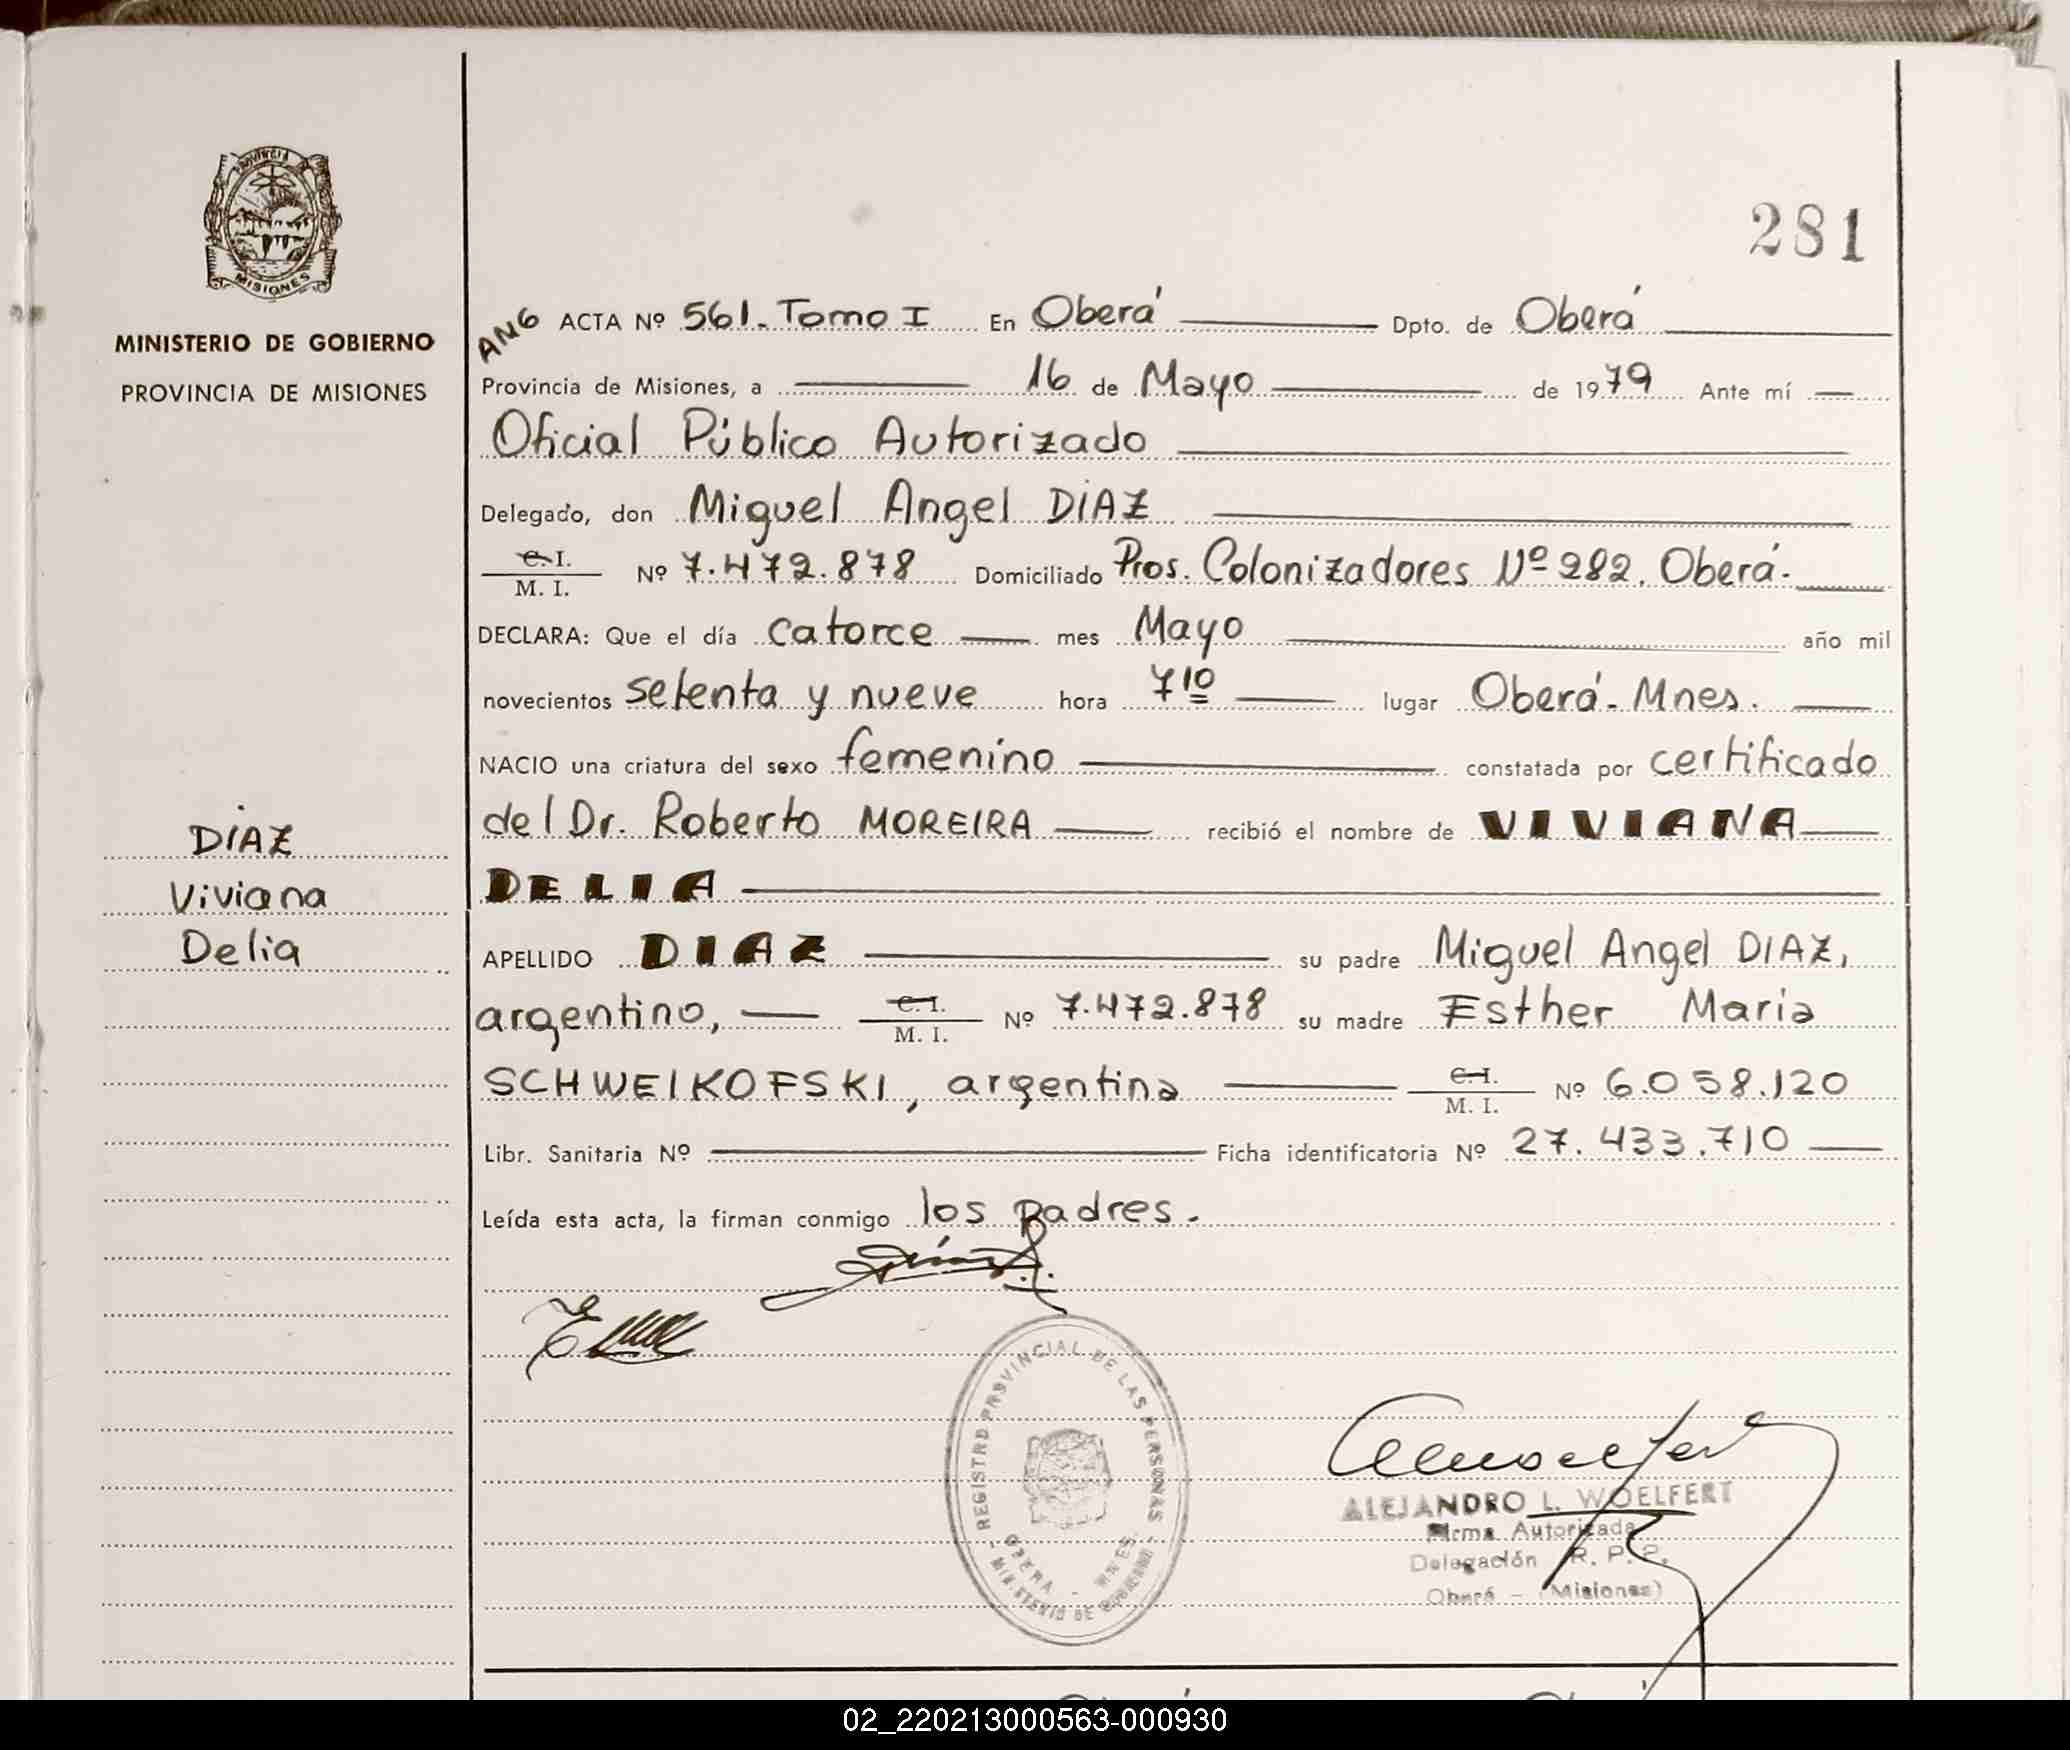 PROVINCIA
MISIONES
MINISTERIO DE GOBIERNO
PROVINCIA DE MISIONES
DIAZ
Viviana
Delia
281
ANG ACTA Nº 561. Tomo I En Oberá Dpto. de Oberá
Provincia de Misiones, a 16 de Mayo de 1979 Ante mí
Oficial Público Autorizado
Delegado, don Miguel Angel DIAZ
C. I.
M. I. Nº 7.472.878 Domiciliado Pros. Colonizadores Nº 282. Oberá.
DECLARA: Que el día catorce mes Mayo año mil
novecientos setenta y nueve hora 7 10 lugar Oberá. Mnes.
NACIO una criatura del sexo femenino constatada por certificado
del Dr. Roberto MOREIRA recibió el nombre de VIVIANA
DELIA
APELLIDO DIAZ su padre Miguel Angel DIAZ,
argentino, C. I. M. I. Nº 7.472.878 su madre Esther Maria
SCHWEIKOFSKI, argentina C. I. M. I. Nº 6.058.120
Libr. Sanitaria Nº Ficha identificatoria Nº 27.433.710
Leída esta acta, la firman conmigo los padres.
REGISTRO PROVINCIAL DE LAS PERSONAS
OBERA - MNES.
MINISTERIO DE GOBIERNO
ALEJANDRO L. WOELFERT
Firma Autorizada
Delegación R. P. P.
Oberá - (Misiones)
02_220213000563-000930